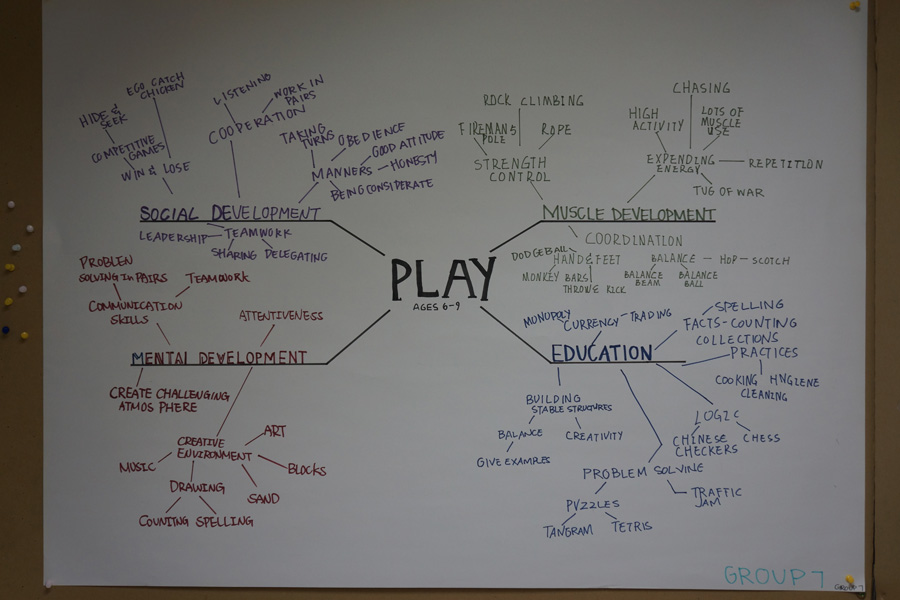 PLAY
AGES 6-9
SOCIAL DEVELOPMENT
WIN & LOSE
COMPETITIVE
GAMES
HIDE &
SEEK
EGO CATCH
CHICKEN
COOPERATION
LISTENING
WORK IN
PAIRS
MANNERS
TAKING
TURNS
OBEDIENCE
GOOD ATTITUDE
HONESTY
BEING CONSIDERATE
TEAMWORK
LEADERSHIP
SHARING DELEGATING
MUSCLE DEVELOPMENT
STRENGTH
CONTROL
FIREMANS
POLE
ROCK CLIMBING
ROPE
EXPENDING
ENERGY
HIGH
ACTIVITY
CHASING
LOTS OF
MUSCLE
USE
REPETITION
TUG OF WAR
COORDINATION
DODGEBALL
HAND & FEET
MONKEY BARS
THROW & KICK
BALANCE
HOP-SCOTCH
BALANCE
BEAM
BALANCE
BALL
MENTAL DEVELOPMENT
COMMUNICATION
SKILLS
PROBLEN
SOLVING IN PAIRS
TEAMWORK
ATTENTIVENESS
CREATE CHALLENGING
ATMOSPHERE
CREATIVE
ENVIRONMENT
ART
BLOCKS
SAND
MUSIC
DRAWING
COUNTING SPELLING
EDUCATION
MONOPOLY
CURRENCY
TRADING
SPELLING
FACTS-COUNTING
COLLECTIONS
PRACTICES
COOKING
HNGIENE
CLEANING
LOGIC
CHINESE
CHECKERS
CHESS
BUILDING
STABLE STRUCTURES
BALANCE
CREATIVITY
GIVE EXAMPLES
PROBLEM SOLVINE
TRAFFIC
JAM
PUZZLES
TANGRAM
TETRIS
GROUP 7
GROUP 7